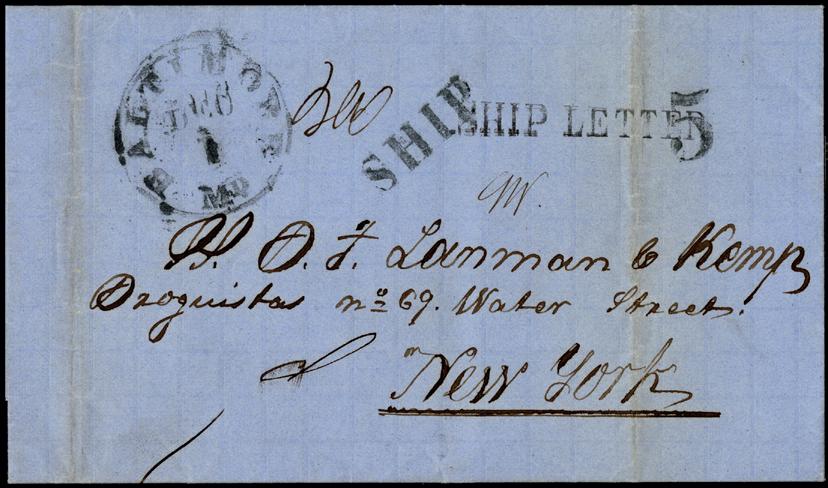 BALTIMORE
DEC
1
MD
SHIP
SHIP LETTER
5
D. F. Lanman & Kemp
Droguistas nº 69. Water Street.
New York